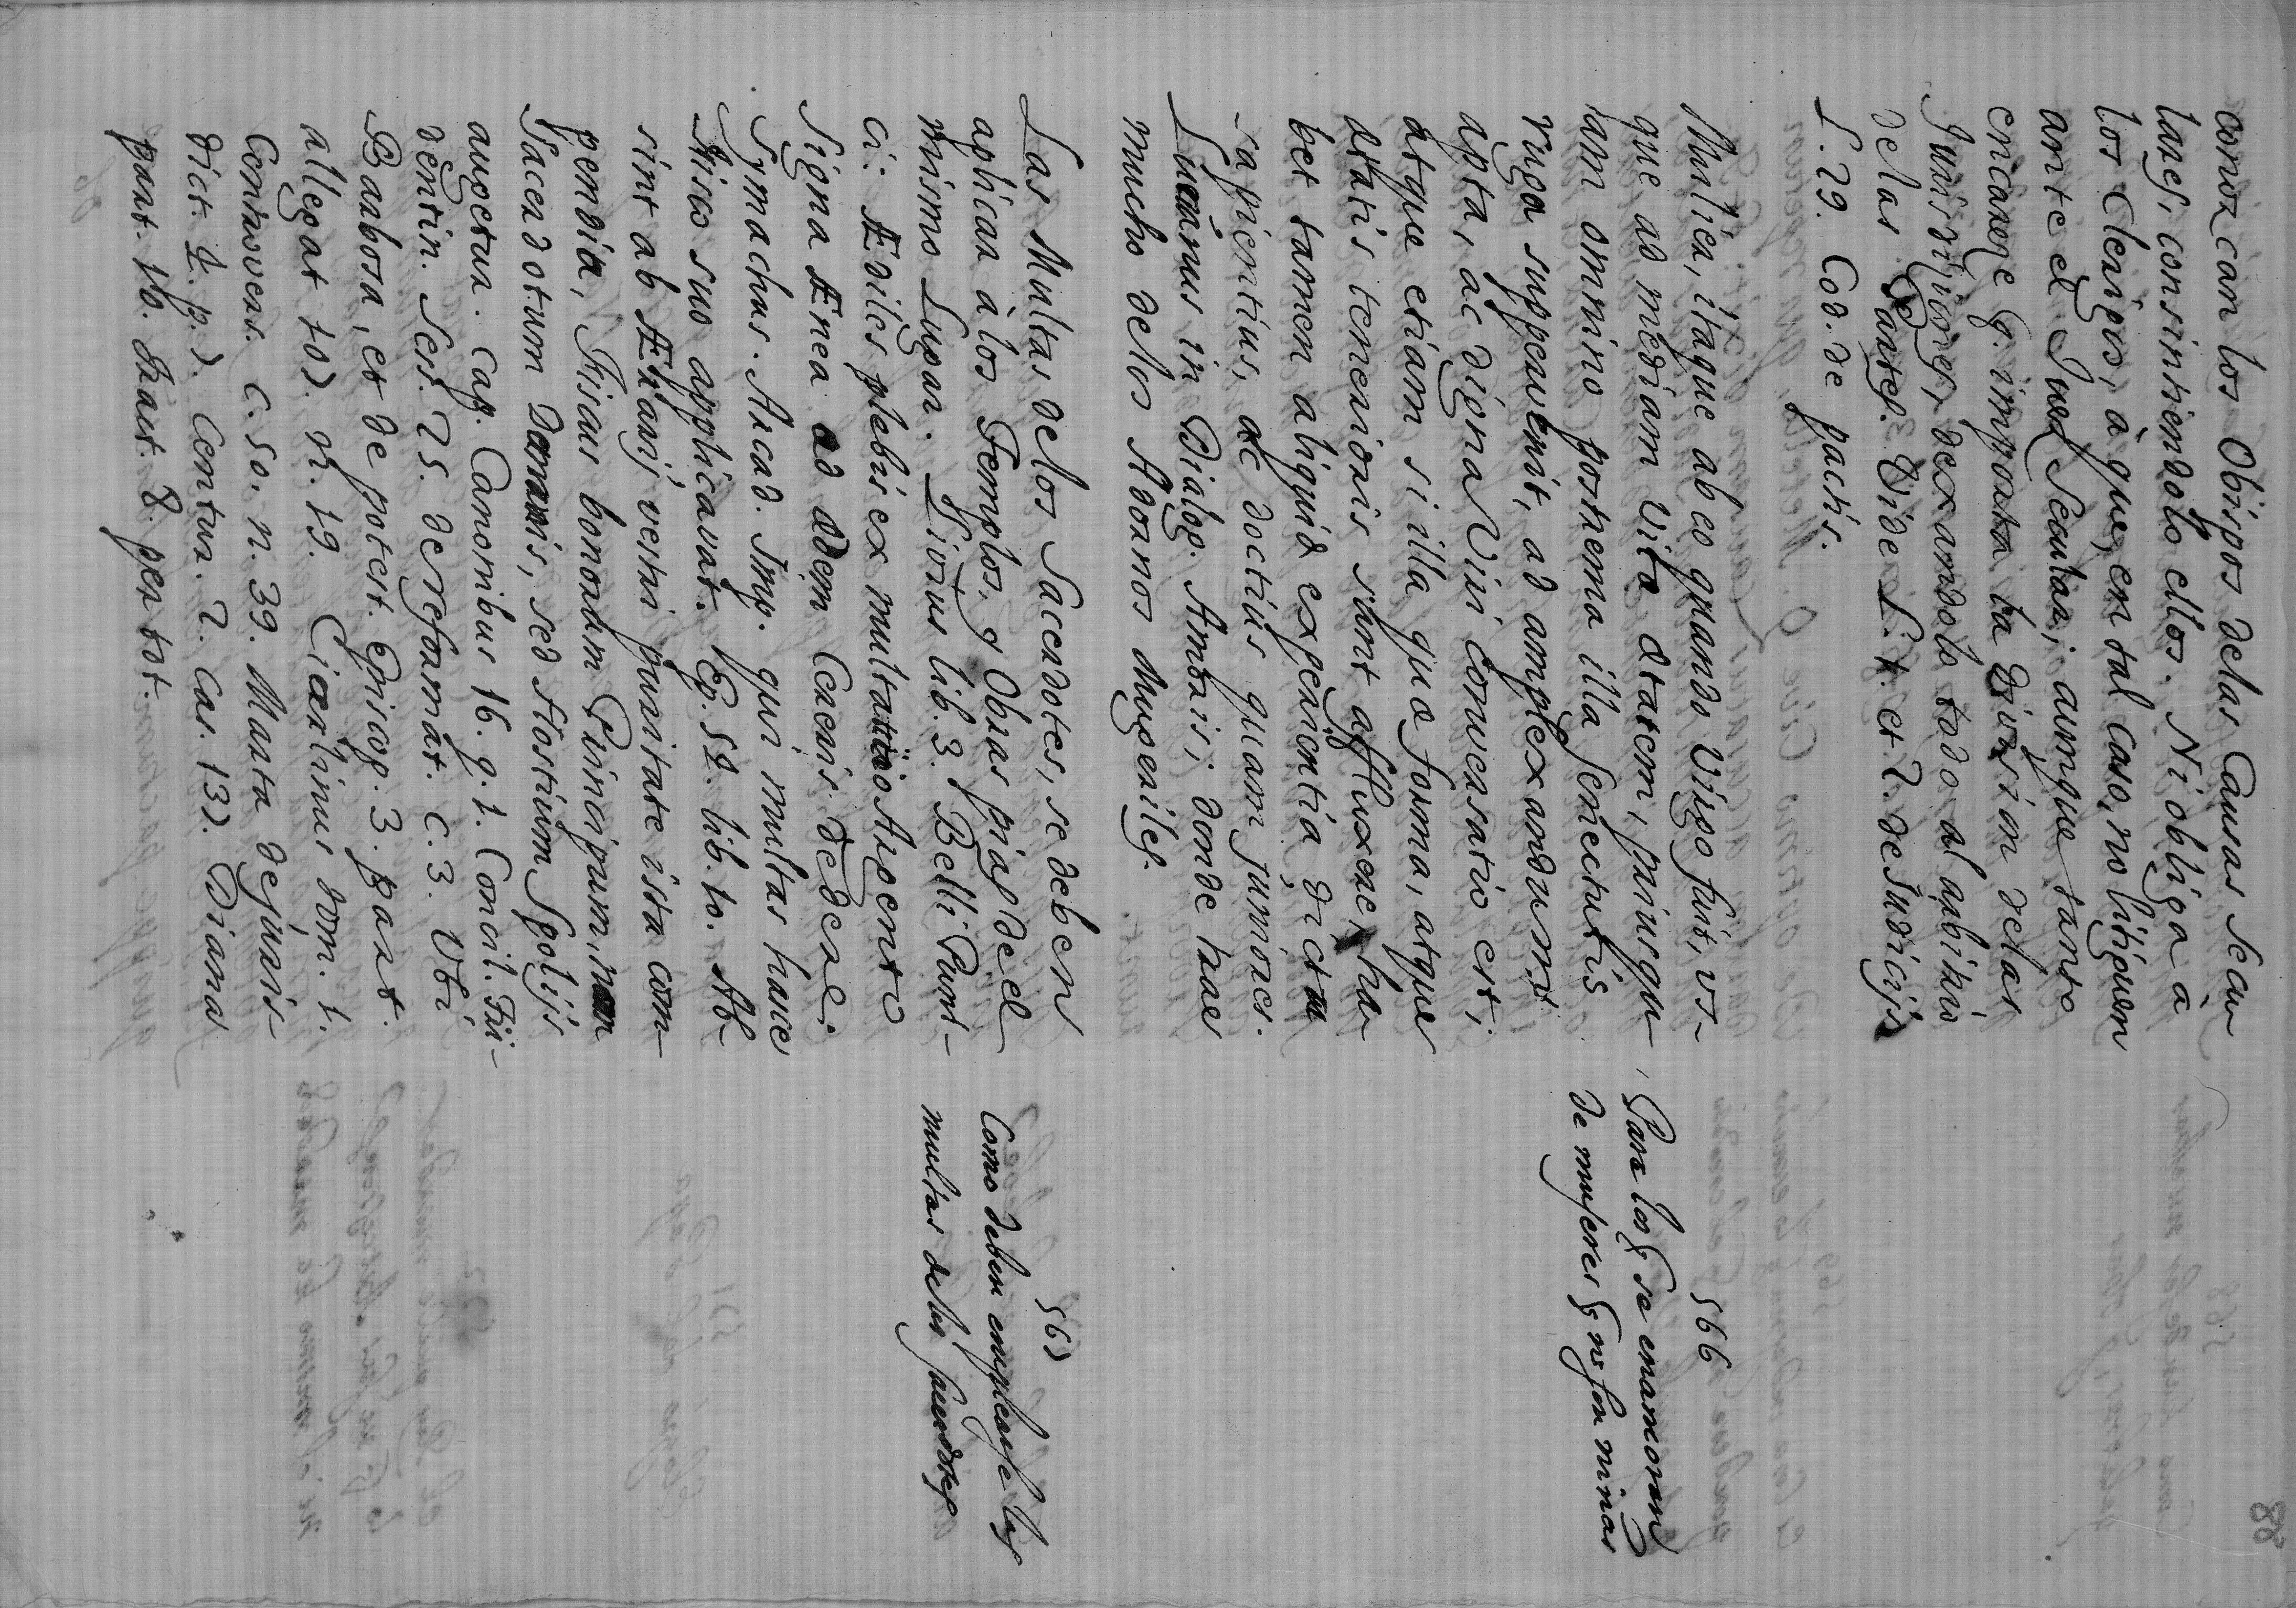 88
conozcan los Obispos delas Causas Secu
lares, consintiendolo ellos. Ni obliga à
los Clerigos, à que, en tal Caso, no litiguen
ante el Juez Secular; aunque tanto
encarece q. importa la division delas
Jurisdicciones, dexandolo todo al arbitrio
delas Partes. Vide L. 1. et 2. de Judicijs
L. 29. Cod. de pactis.
Mulier, itaque ab eo quando Virgo fuit, us-
que ad mediam Vitæ ætatem, priusqu
tam omnino postrema illa Senectutis
ruga suppeaverit, ad amplexandum
apta, ac digna Viri Conversatio est;
atque etiam si illa quæ forma, atque
ætatis tenerioris sunt affluxere, ha-
bet tamen aliquid experientia, dictu
sapientius, ac doctius quam juniores.
Lucianus in Dialog. Amoris; donde trae
mucho delos Adornos Mugeriles.
566
Para los q. se enamoran
de mugeres q. no son niñas
Las Multas delos Sacerdotes, se deben
aplicar à los Templos, y Obras pias de el
mismo Lugar. Livius lib. 3. Belli Puni-
ci. Ædiles plebis ex multatitio Argento
Signa Ænea ad ædem Cereris dedere.
Symachus. Arcad. Imp. qui multas hasce
Fisco suo applicavat. Ep. 54. lib. 10. Ab-
sint ab Ærarij vestri puritate ista com-
pendia, Fiscus bonorum Principum, non
Sacerdotum Damnis, sed Hostium Spolijs
augetur. Cap. Canonibus 16. q. 1. Concil. Tri-
dentin. Sess. 25. de reformat. c. 3. Ubi
Barbosa, et de potest. Episcop. 3. part.
allegat 107. n. 19. Ciarlinus tom. 1.
Controvers. c. 50. n. 39. Marta de juris-
dict. 4. p. 7. Centur. 2. cas. 137. Diana
part. 10. tract 8. per tot.
567
Como deben emplearse las
multas delos Sacerdotes